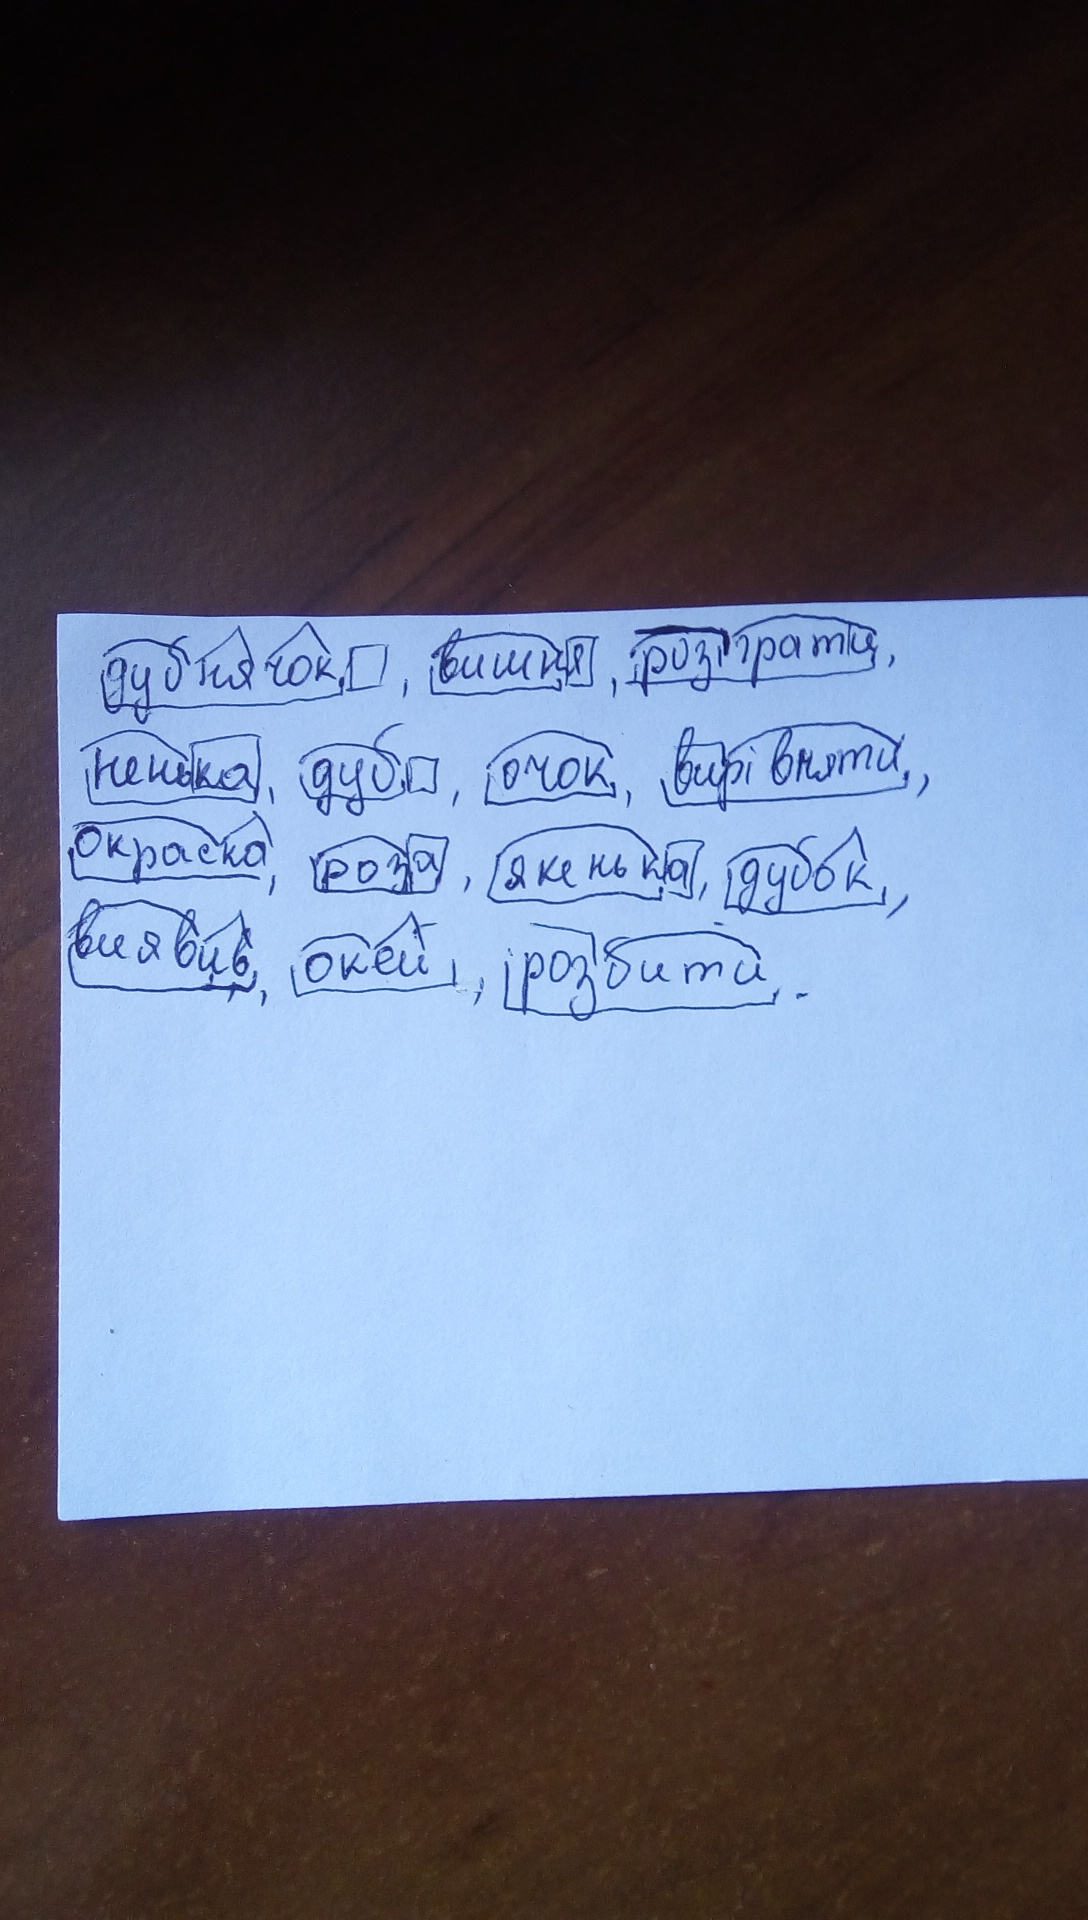 дубнячок, вишня, розіграти,
ненька, дуб, очок, вирівняти,
окраска, роза, якенька, дубок,
виявив, окей, розбити.